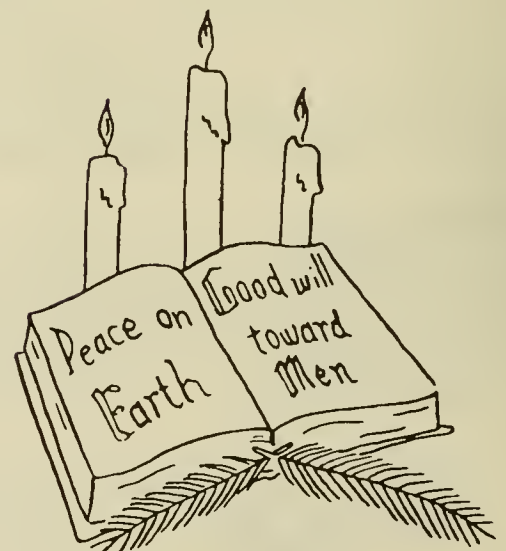 Peace on
Earth
Good will
toward
Men